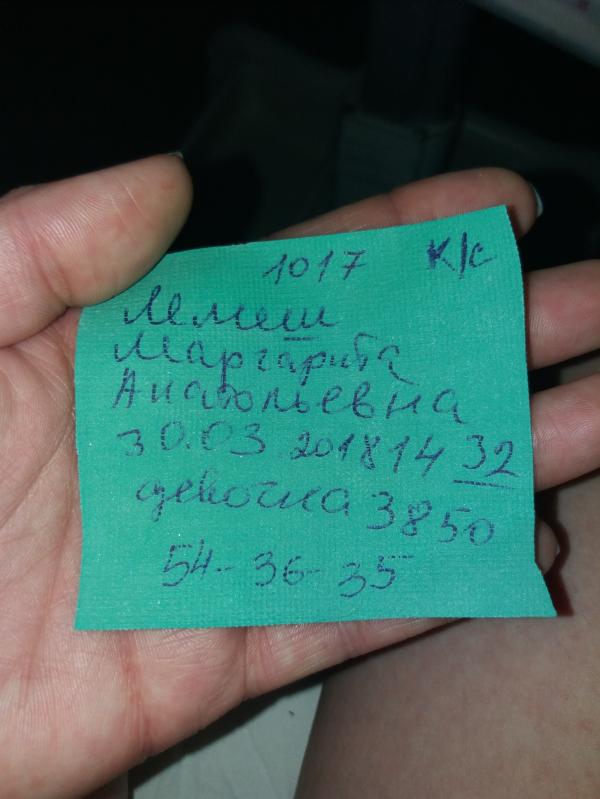 1017 К/с
Лемеш
Маргарита
Анатольевна
30.03.2018 14 32
девочка 3850
54-36-35